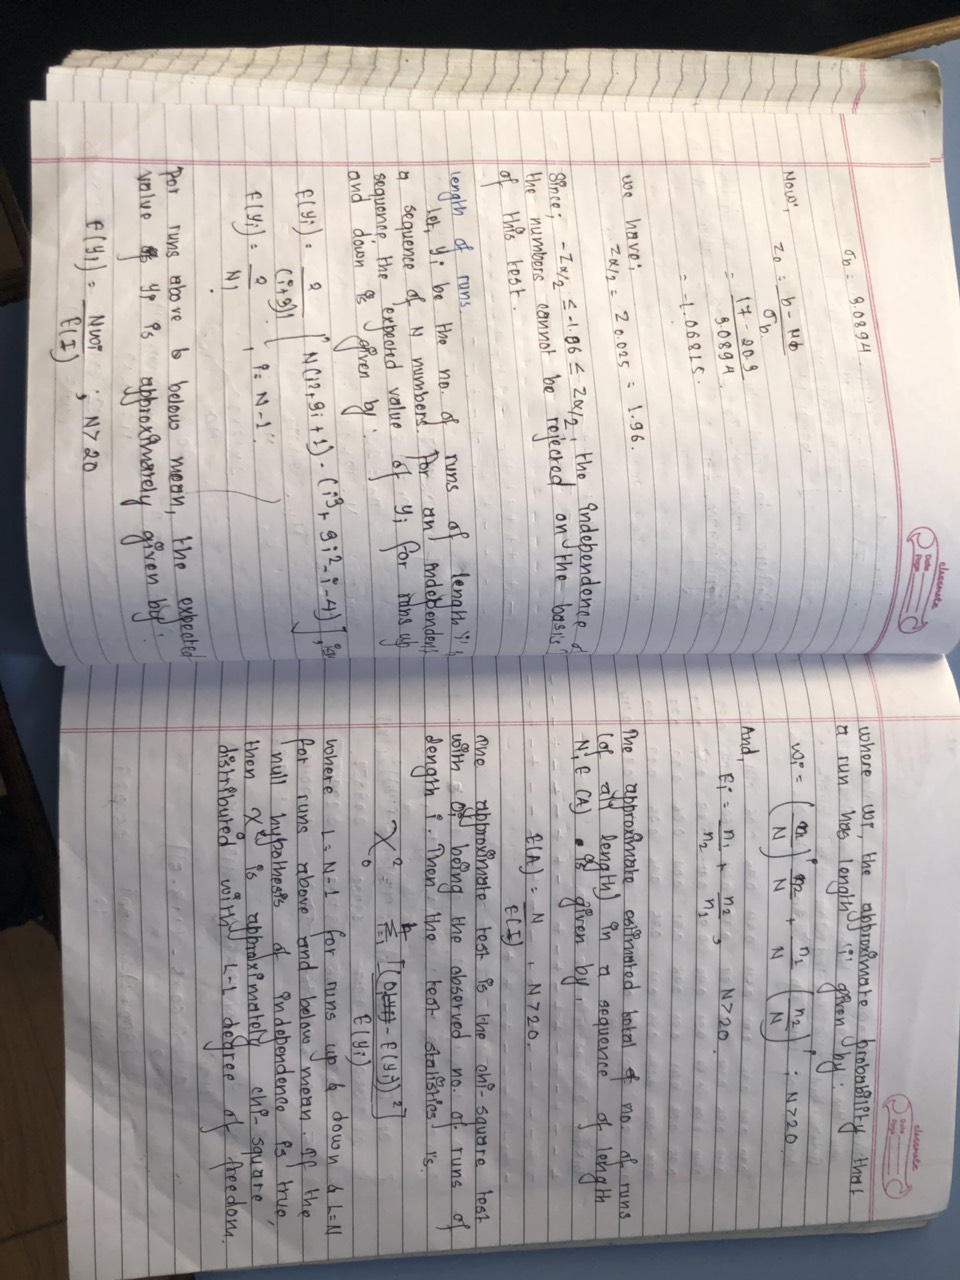 classmate
Date
Page
σb = 3.0894
Now, Z0 = b - Mb
σb
= 17 - 20.3
3.0894
= -1.06815.
we have:
Zα/2 = Z0.025 = 1.96.
Since; -Zα/2 ≤ -1.06 ≤ Zα/2, the independence of
the numbers cannot be rejected on the basis
of this test.
length of runs
Let, yi be the no. of runs of length 'i' in
a sequence of N numbers. For an independent
sequence, the expected value of yi for runs up
and down is given by:
E(yi) = 2 / (i+3)! [N(i2+3i+1) - (i3+3i2-i-4)],
E(yi) = 2 / N! , i = N-1.
For runs above & below mean, the expected
value of yi is approximately given by:
E(yi) = Nwi / E(I) ; N>20
classmate
Date
Page
where wi, the approximate probability that
a run has length 'i' given by:
wi = (n1/N)^i n2/N + n1/N (n2/N)^i ; N>20
And,
Ei = n1/n2 + n2/n1 , N>20.
The approximate estimated total of no. of runs
(of all length) in a sequence of length
N, E(A) is given by,
E(A) = N / E(I) , N>20.
The approximate test is the chi-square test
with Oi being the observed no. of runs of
length i. Then the test statistics is.
χ0^2 = Σ i=1 [(Oi - E(yi))^2] / E(yi)
where L = N-1 for runs up & down & L=N
for runs above and below mean. If the
null hypothesis of independence is true,
then χ0^2 is approximately chi-square
distributed with L-1 degree of freedom.